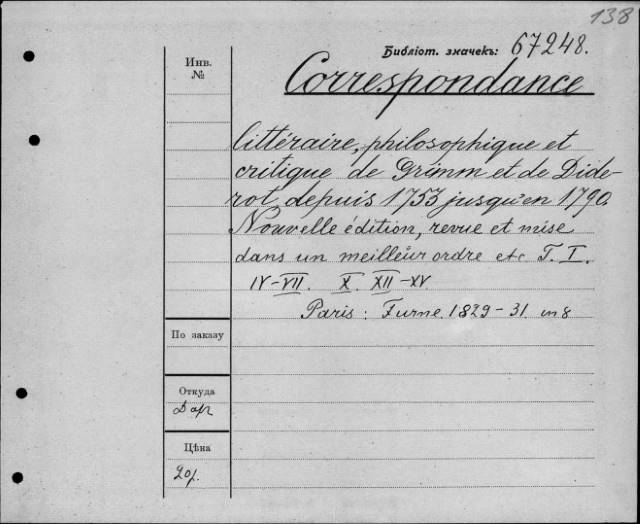 138
Библіот. значекъ: 67248.
Инв.
№
Correspondance
littéraire, philosophique et
critique de Grimm et de Dide-
rot, depuis 1753 jusqu'en 1790.
Nouvelle édition, revue et mise
dans un meilleur ordre etc T. I.
IV-VII. X. XII-XV
Paris: Furne. 1829-31. in 8
По заказу
Откуда
Дар
Цѣна
20р.